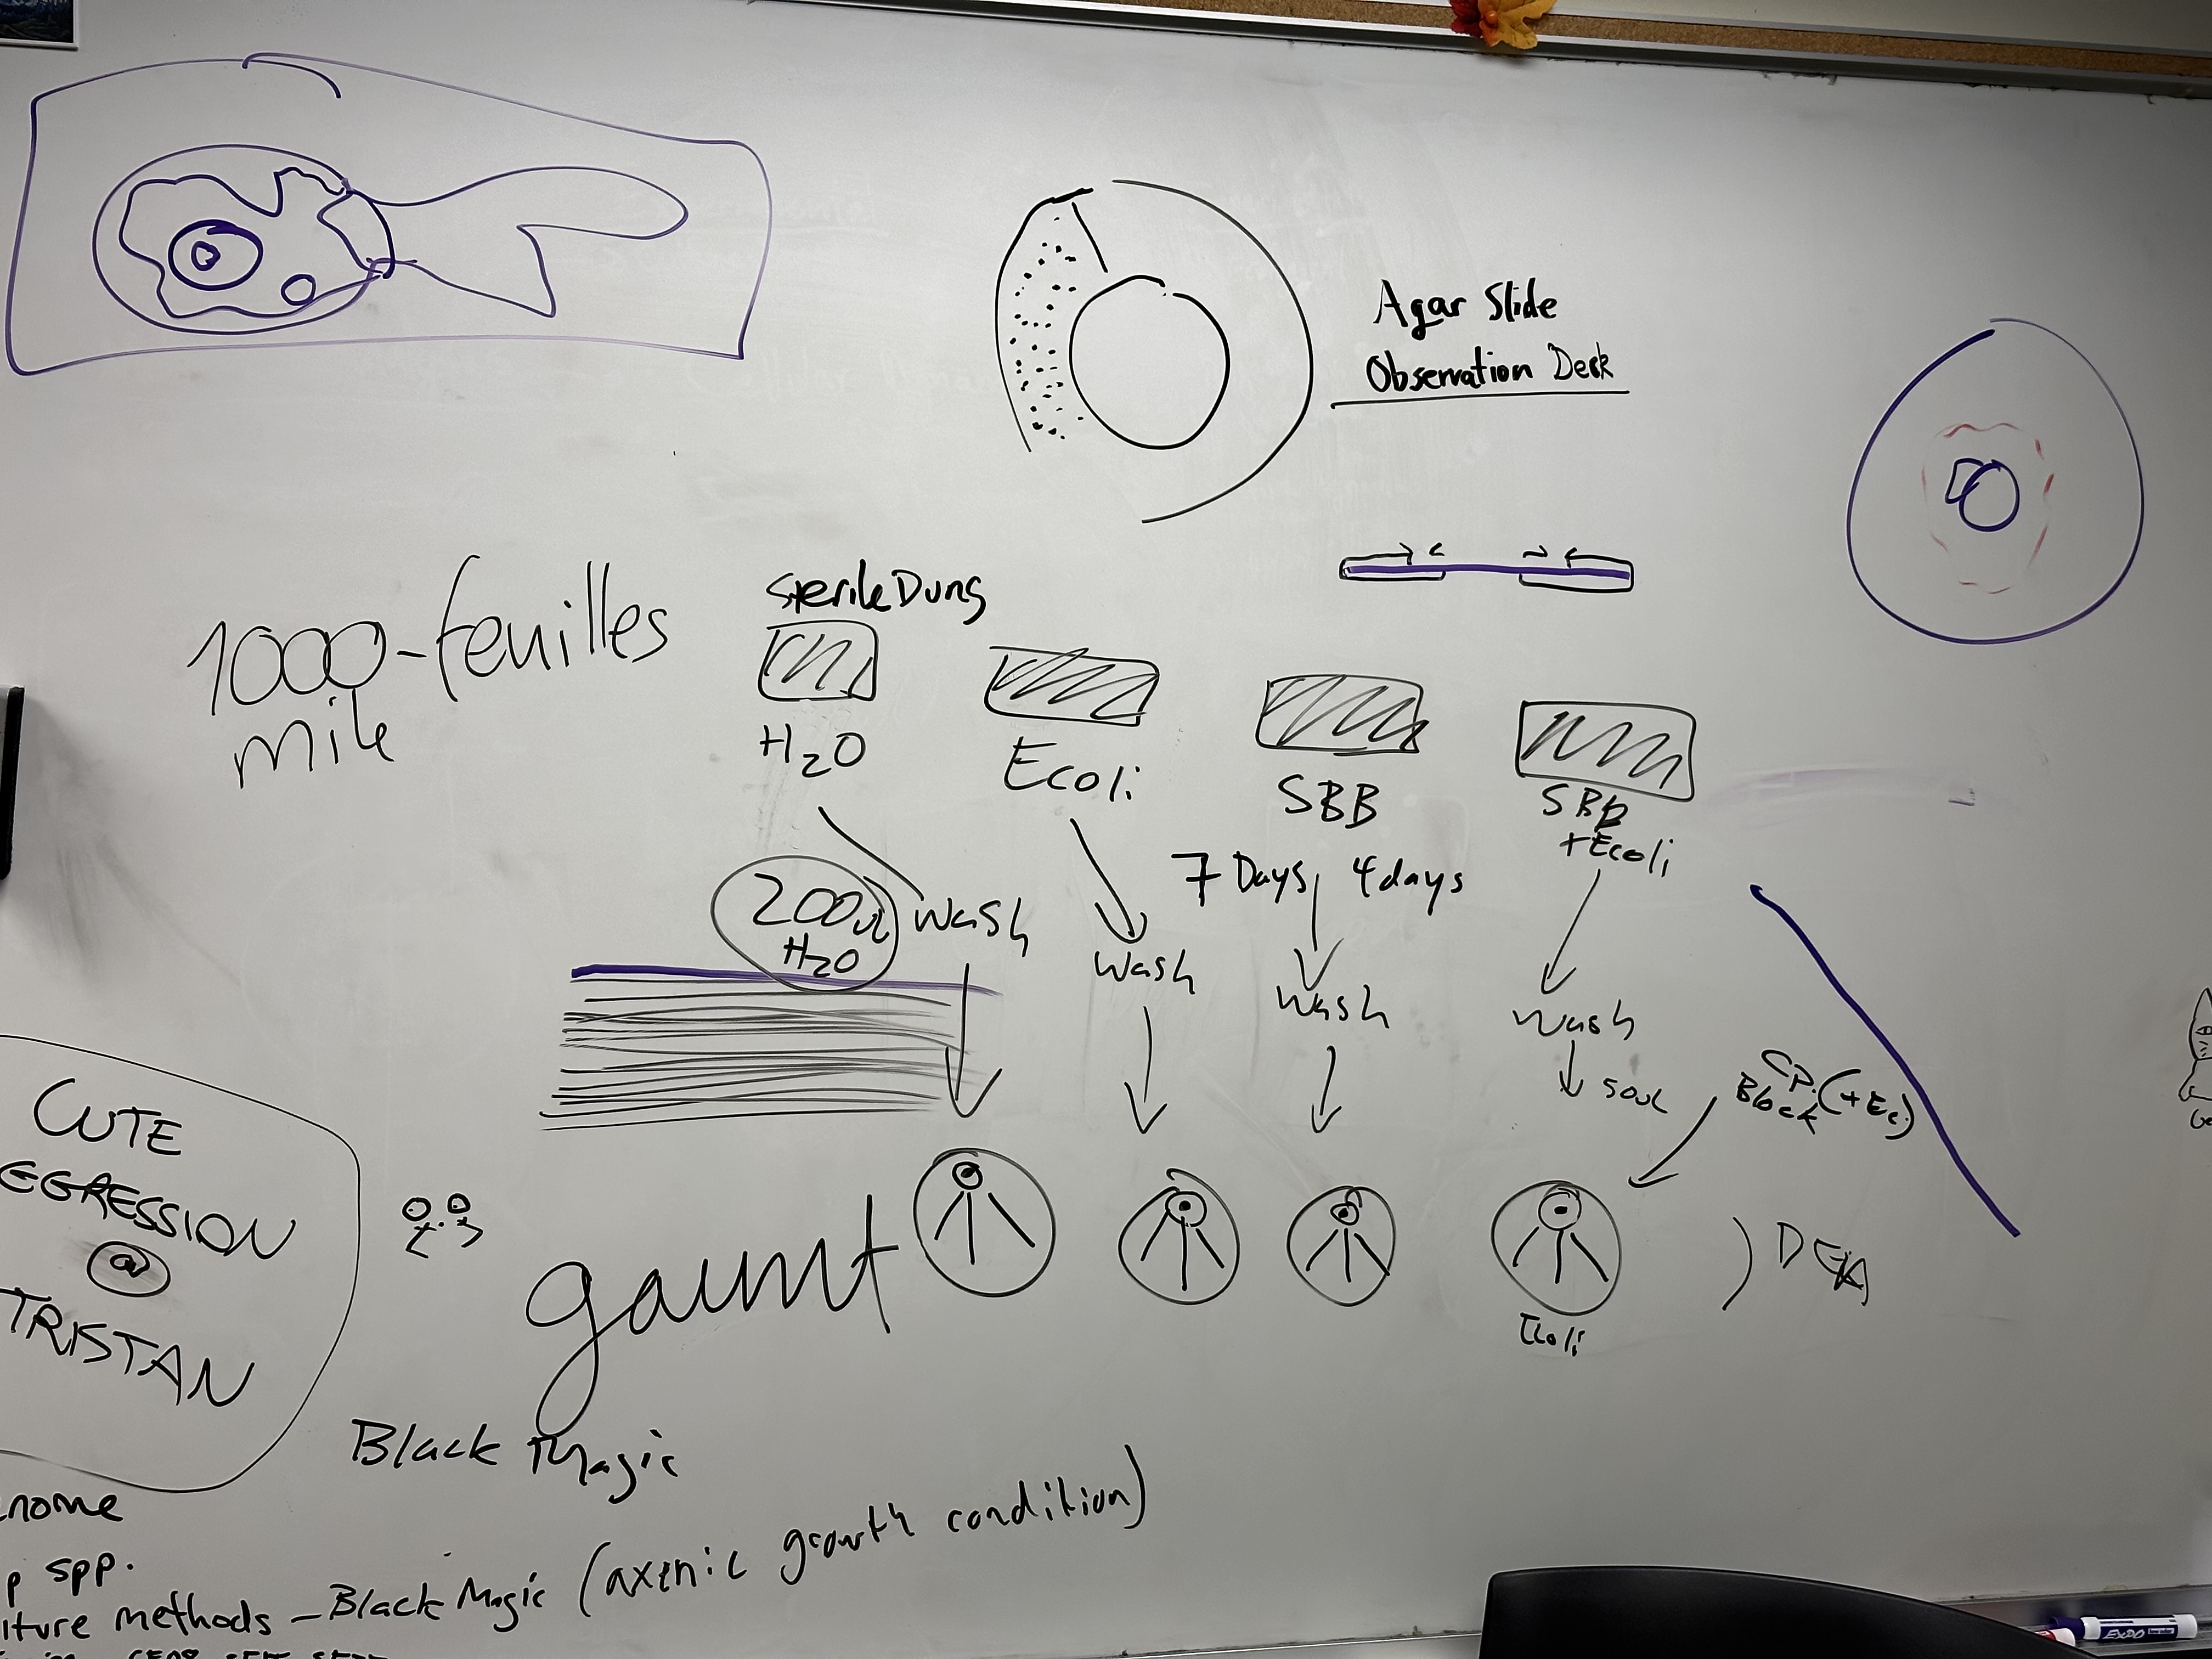 Agar Slide
Observation Deck
1000-feuilles
mile
Sterile Dung
H2O
Ecoli
SBB
SBB
+Ecoli
7 Days
4 days
200ul
H2O
Wash
Wash
Wash
Wash
soul
CP.
Block (+Ec.)
CUTE
EGGRESSION
@
TRISTAN
gaunt
Ecoli
Black Magic
nome
p spp.
lture methods – Black Magic (axenic growth condition)
EXPO